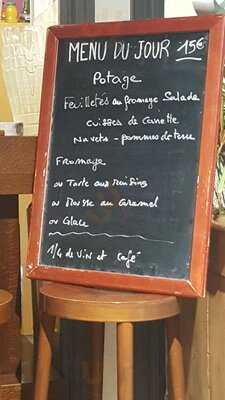 MENU DU JOUR 15€
Potage
Feuilletés au fromage Salade
Cuisses de Canette
Navets - pommes de terre
Fromage
ou Tarte aux raisins
ou Mousse au Caramel
ou Glace
1/4 de vin et café